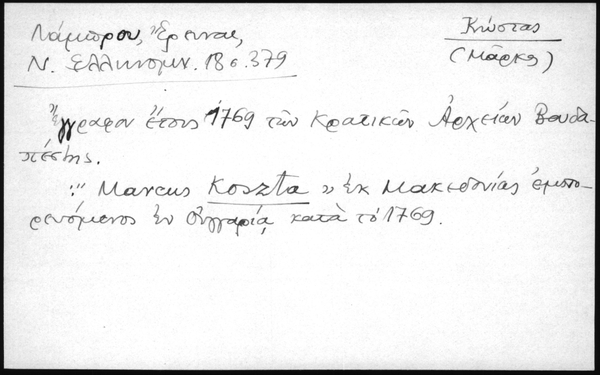 Κώστας
(Μάρκος)
Λάμπρου, Ἔρευναι,
Ν. Ἑλληνομν. 18 σ. 379
Ἔγγραφον ἔτους 1769 τῶν Κρατικῶν Ἀρχείων Βουδα-
πέστης.
:" Marcus Koszta " ἐκ Μακεδονίας ἐμπο-
ρευόμενος ἐν Οὑγγαρίᾳ κατὰ τὸ 1769.